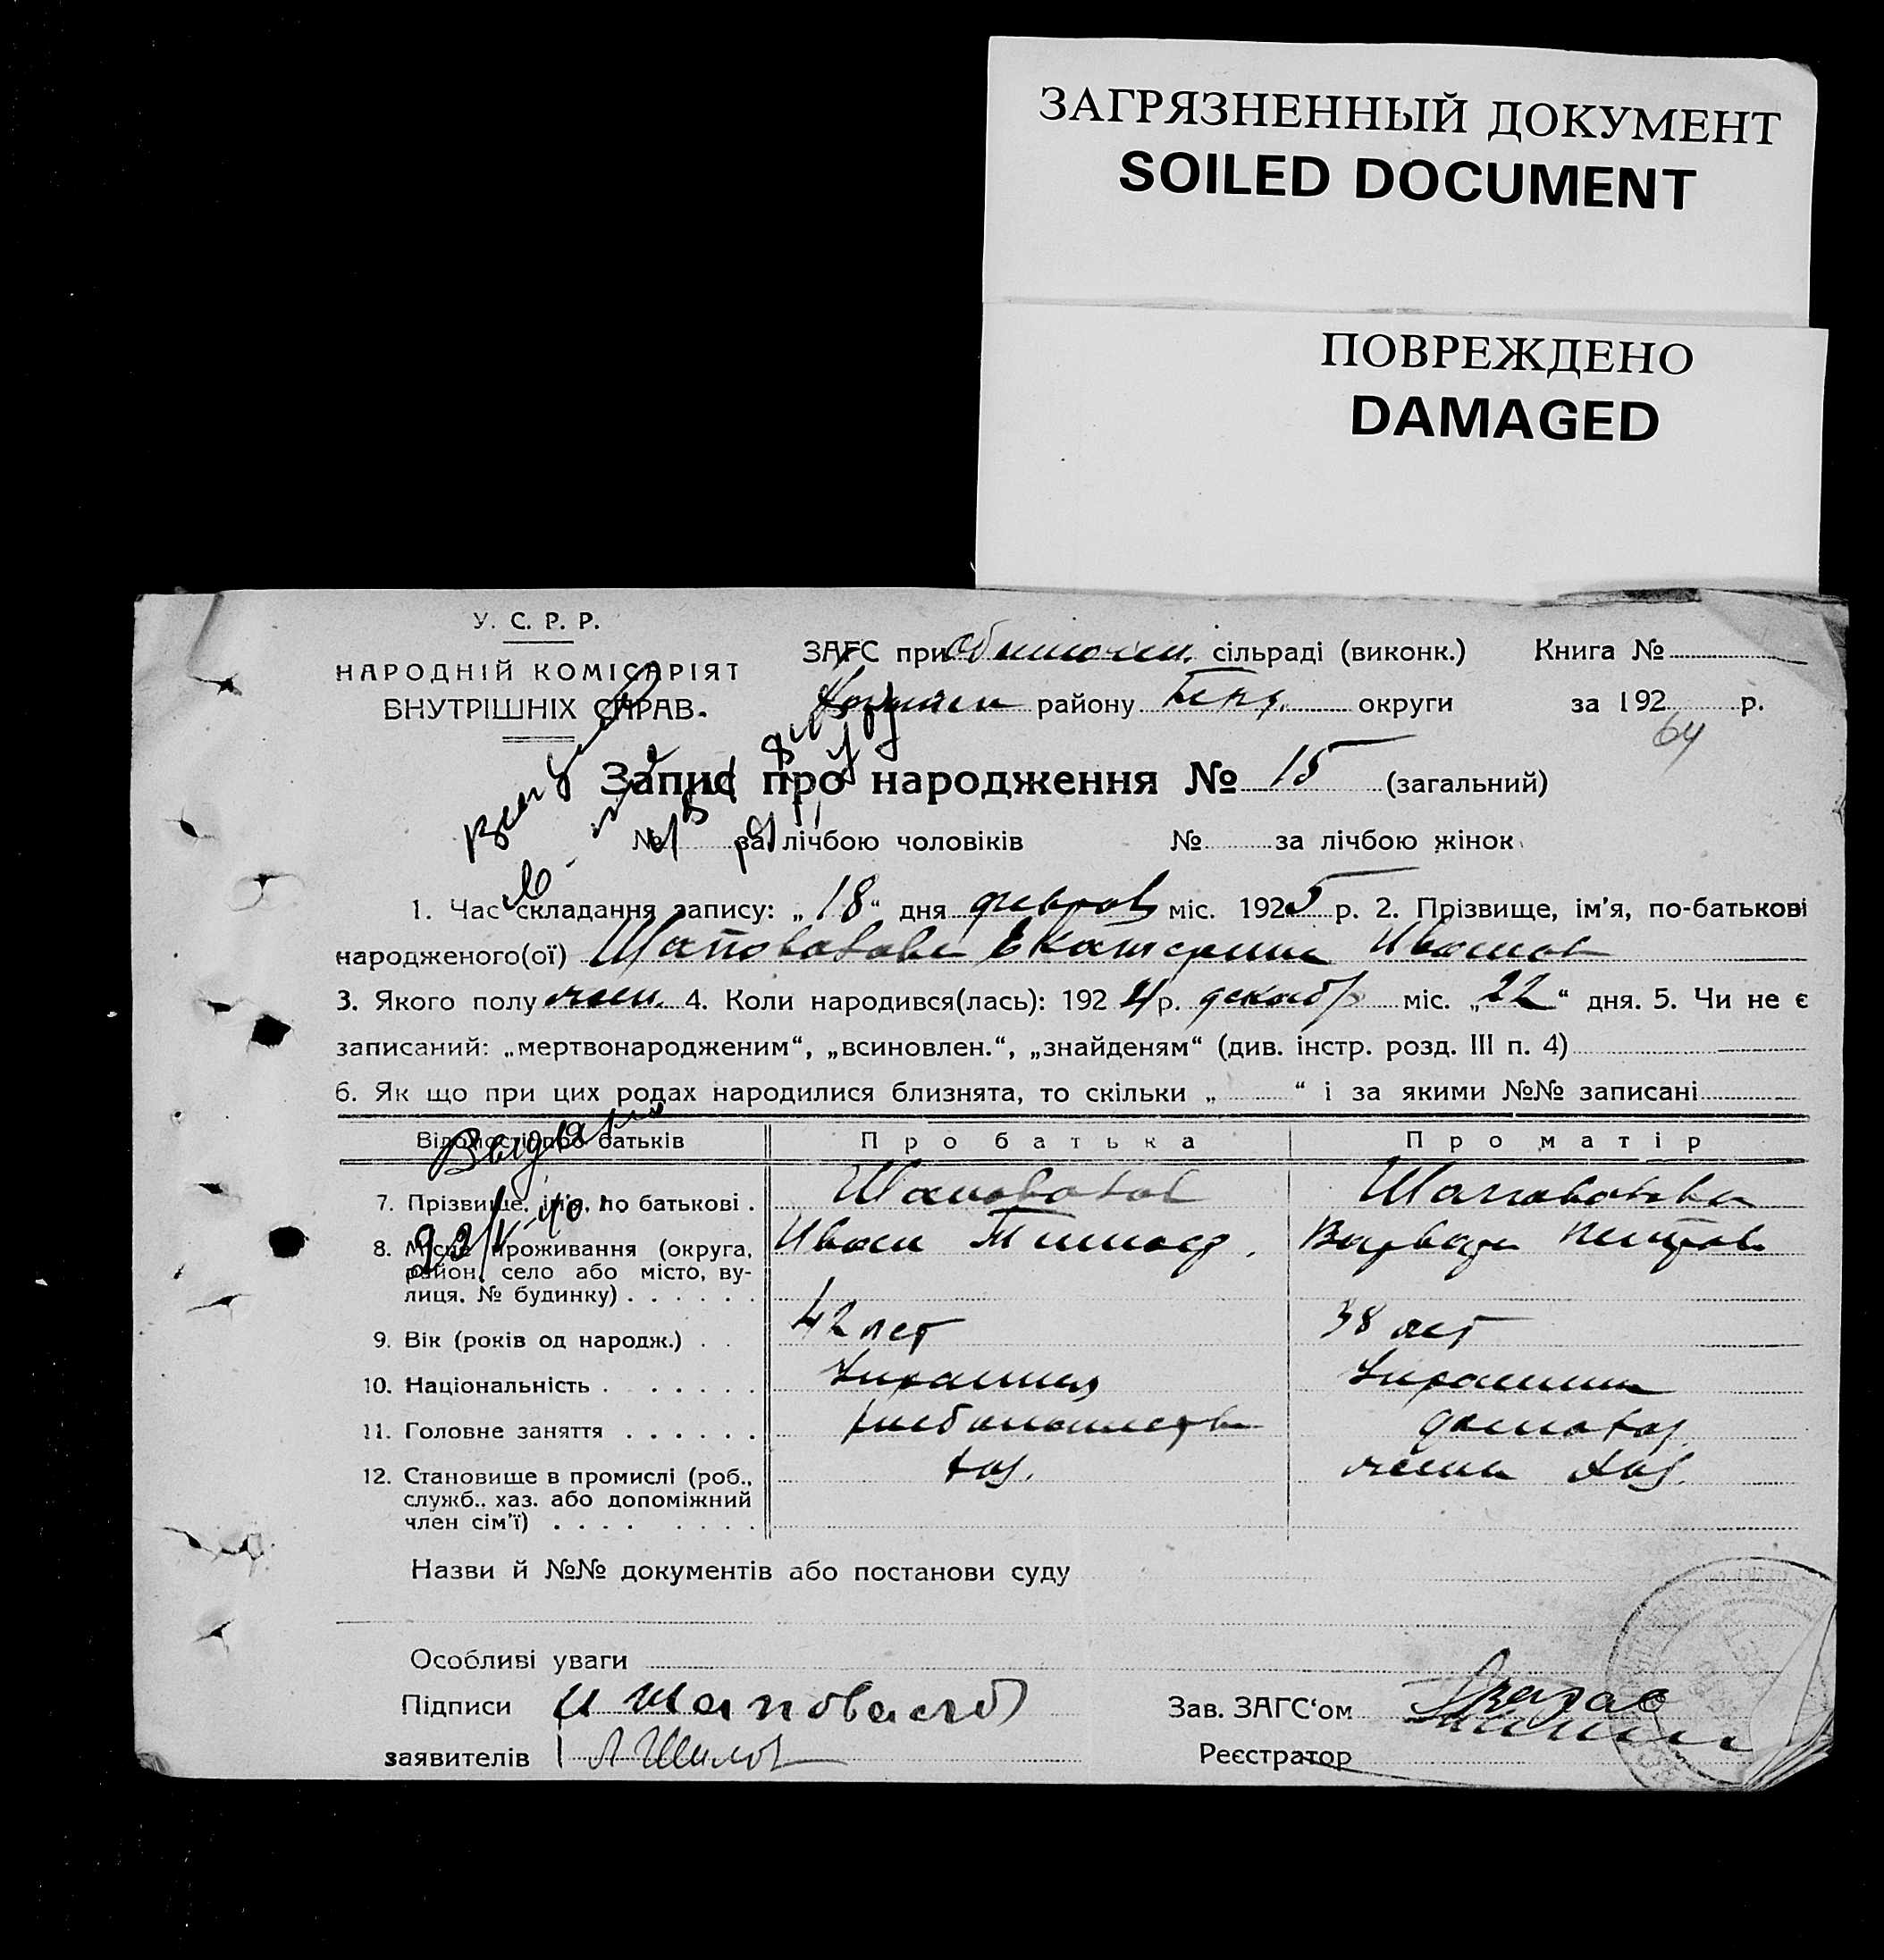 ЗАГРЯЗНЕННЫЙ ДОКУМЕНТ
SOILED DOCUMENT
ПОВРЕЖДЕНО
DAMAGED
У. С. Р. Р.
НАРОДНІЙ КОМІСАРІЯТ
ВНУТРІШНІХ СПРАВ.
ЗАГС при сільраді (виконк.) Книга №
району округи за 192 р.
64
Запис про народження № 15 (загальний)
№ за лічбою чоловіків № за лічбою жінок
1. Час складання запису: „18“ дня феврал міс. 1925 р. 2. Прізвище, ім'я, по-батькові
народженого(ої) Шаповалова Екатерина Иванов
3. Якого полу жен. 4. Коли народився(лась): 1924 р. декабр міс. „22“ дня. 5. Чи не є
записаний: „мертвонародженим“, „всиновлен.“, „знайденям“ (див. інстр. розд. III п. 4)
6. Як що при цих родах народилися близнята, то скільки „ “ і за якими №№ записані
Відомості про батьків Про батька Про матір
7. Прізвище, ім'я, по батькові . Шаповалов Шаповалова
8. Місце проживання (округа, Иван Тимоф. Варвара Петров
район, село або місто, ву-
лиця, № будинку) . . . . . .
9. Вік (років од народж.) . . 42 лет 38 лет
10. Національність . . . . . . . Украинец Украинка
11. Головне заняття . . . . . . хлебопашеств домохоз.
12. Становище в промислі (роб., хоз. жена хоз.
служб., хаз. або допоміжний
член сім'ї) . . . . . . . .
Видано
Назви й №№ документів або постанови суду
Особливі уваги
Підписи И Шаповалов Зав. ЗАГС'ом
заявителів Реєстратор